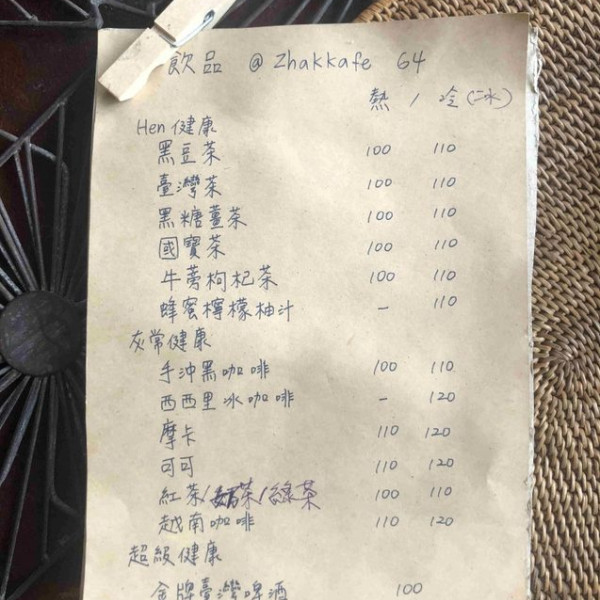 飲品 @ Zhakkafe G4
熱 / 冷(二冰)
Hen 健康
黑豆茶 100 110
臺灣茶 100 110
黑糖薑茶 100 110
國寶茶 100 110
牛蒡枸杞茶 100 110
蜂蜜檸檬柚汁 - 110
灰常健康
手沖黑咖啡 100 110
西西里冰咖啡 - 120
摩卡 110 120
可可 110 120
紅茶/茶/綠茶 100 110
越南咖啡 110 120
超級健康
金牌臺灣啤酒 100